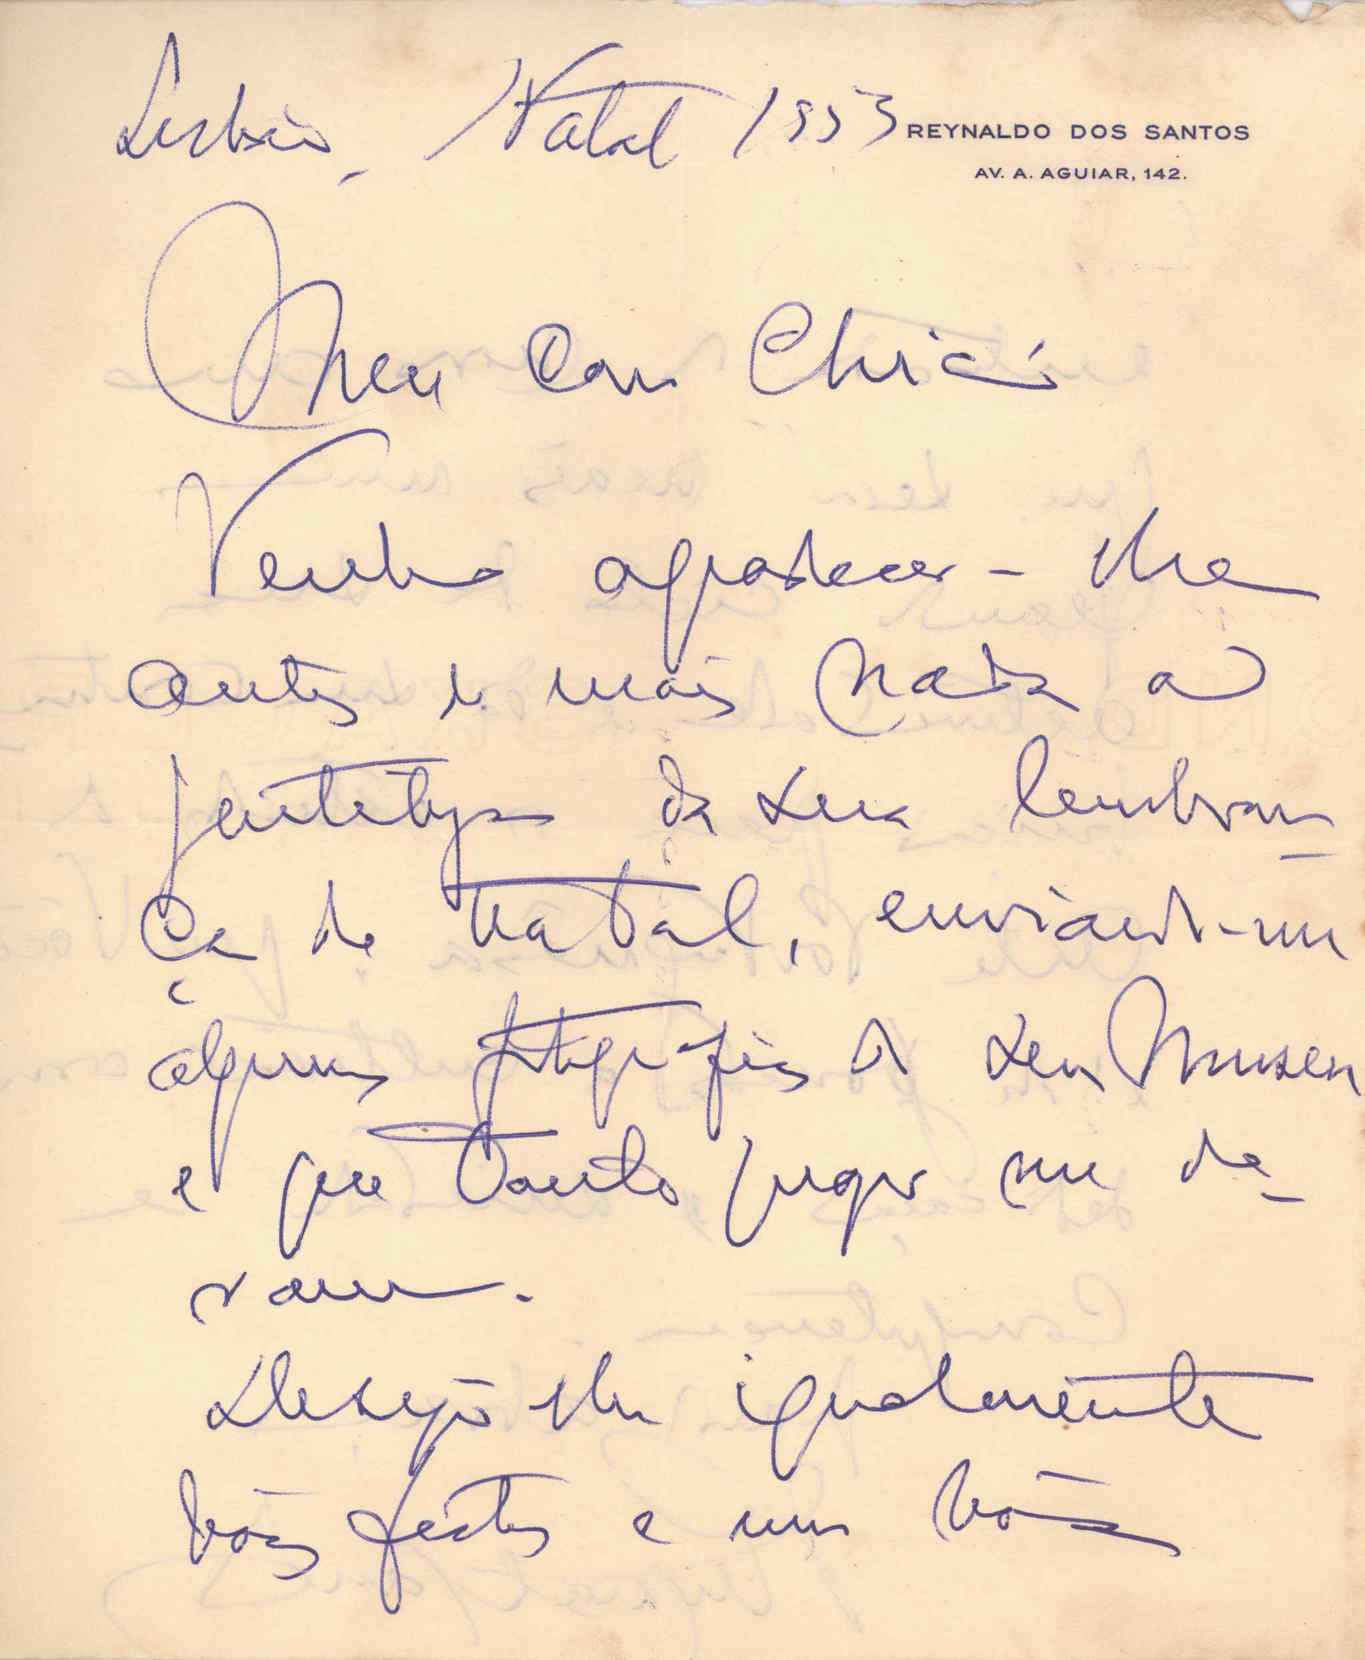 Lisboa, Natal 1953
REYNALDO DOS SANTOS
AV. A. AGUIAR, 142.
Meu Caro Chicó
Venho agradecer-lhe
antes de mais nada a
gentileza da sua lembran-
ça de Natal, enviando-me
algumas fotografias do seu Museu
e que tanto prazer me de-
ram.
Desejo lhe igualmente
boas festas e um bom